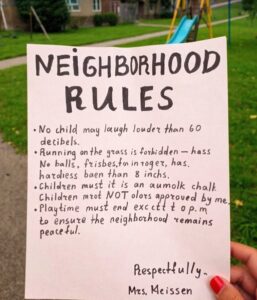 NEiGHBORHOOD
RULES
• No child may laugh louder than 60
decibels.
• Running on the grass is forbidden — hass
No balls, frisbes, to in roger, has.
hardiess baen than 8 inchs.
• Children must it is an aumolk chalk
Children arot NOT olors approved by me.
• Playtime must end excett to p.m
to ensure the neighborhood remains
peaceful.
Respectfully.
Mrs. Meissen